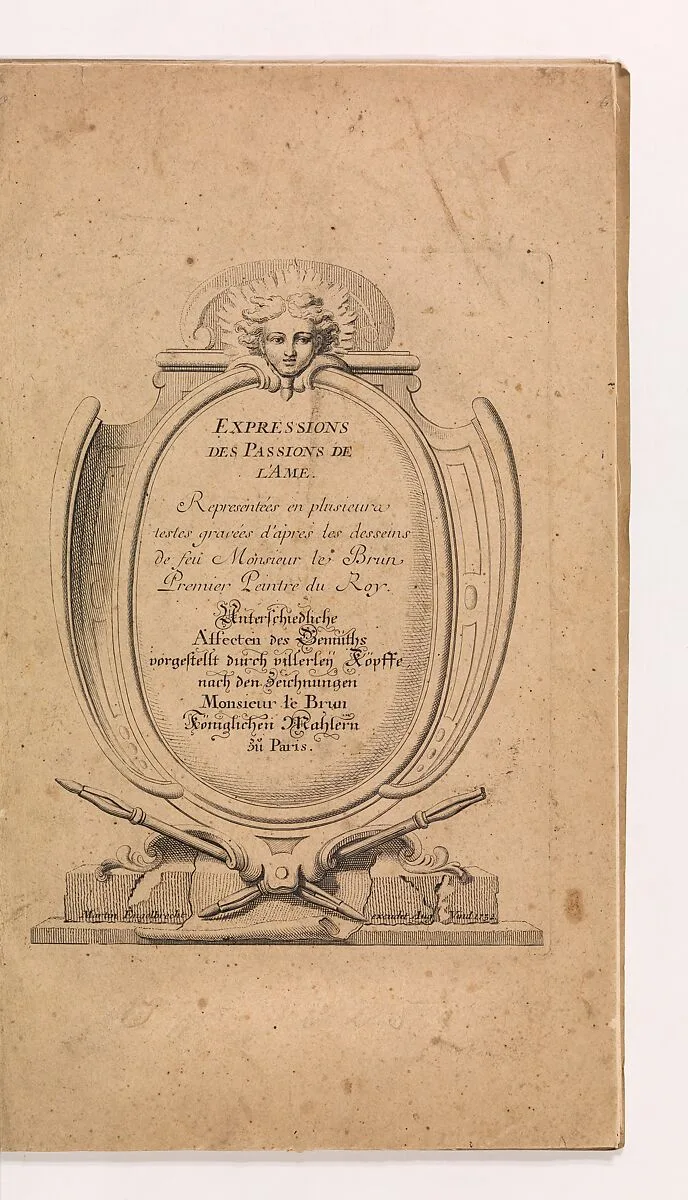 EXPRESSIONS
DES PASSIONS DE
L'AME.
Representées en plusieurs
testes gravées d'apres les desseins
de feü Monsieur le Brun
Premier Peintre du Roy.
Unterschiedliche
Affecten des Gemüths
vorgestellt durch villerleÿ Köpffe,
nach den Zeichnungen
Monsieur le Brun
Königlichen Mahlern
zü Paris.
Martin Engelbrecht excudit Aug. Vind.